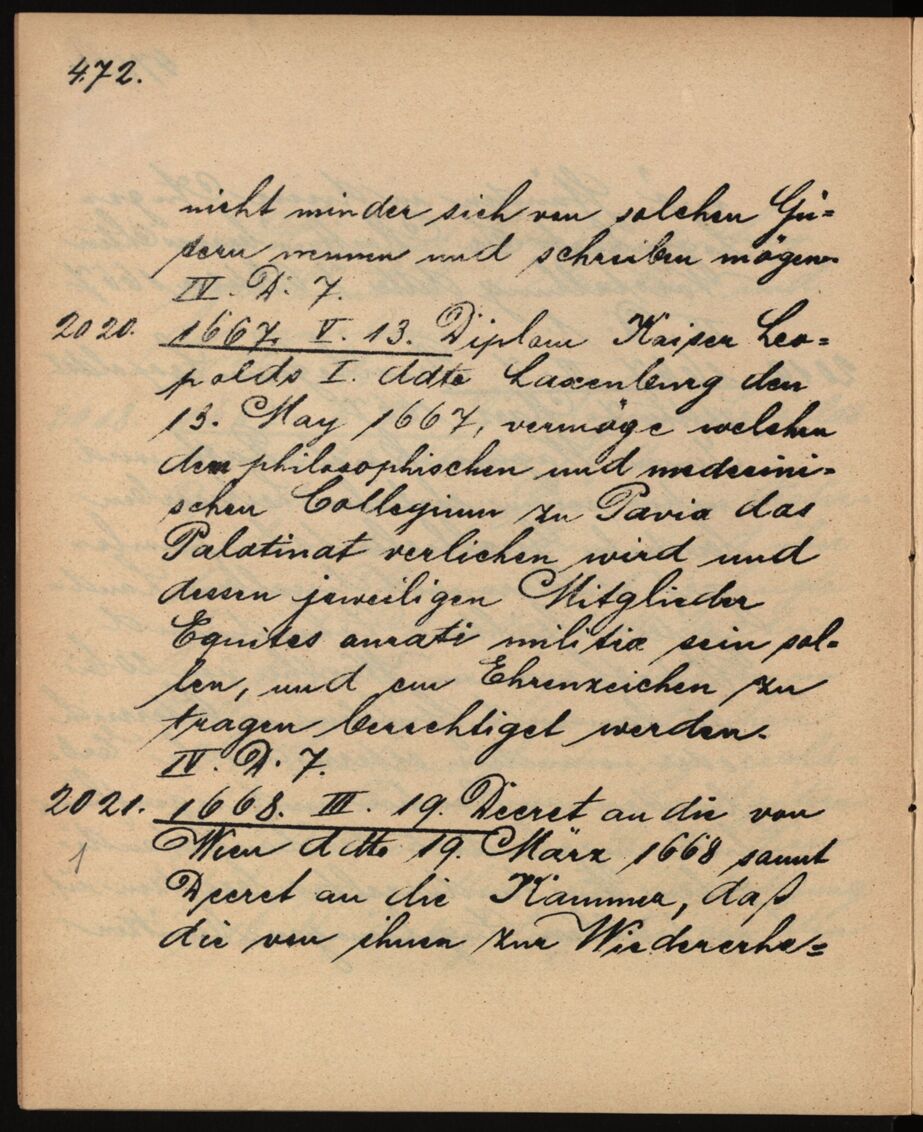 472.
nicht minder sich von solchen Gü=
tern nennen und schreiben mögen.
IV. D. 7.
2020. 1667. V. 13. Diplom Kaiser Leo=
polds I. ddto Laxenburg den
13. May 1667, vermöge welchen
dem philosophischen und medecini=
schen Collegium zu Pavia das
Palatinat verliehen wird und
dessen jeweiligen Mitglieder
Equites aurati militiæ sein sol=
len, und ein Ehrenzeichen zu
tragen berechtiget werden.
IV. D. 7.
2021. 1668. III. 19. Decret an die von
Wien ddto 19. März 1668 sammt
Decret an die Kammer, daß
die von ihnen zur Wiedererhe=